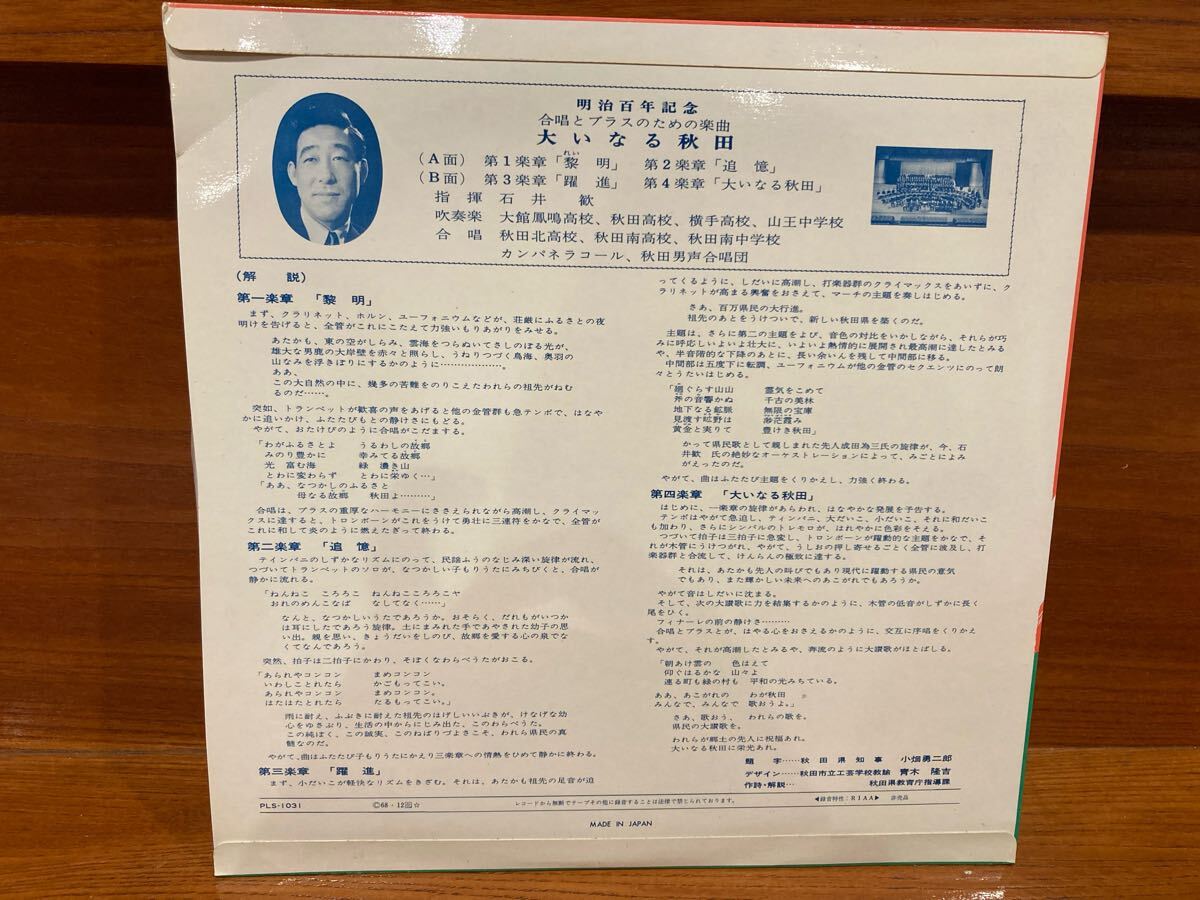 明治百年記念
合唱とブラスのための楽曲
大いなる秋田
(A面) 第1楽章「黎明」 第2楽章「追憶」
(B面) 第3楽章「躍進」 第4楽章「大いなる秋田」
指揮 石井 歓
吹奏楽 大館鳳鳴高校、秋田高校、横手高校、山王中学校
合唱 秋田北高校、秋田南高校、秋田南中学校
カンパネラコール、秋田男声合唱団
(解 説)
第一楽章 「黎 明」
まず、クラリネット、ホルン、ユーフォニウムなどが、荘厳にふるさとの夜
明けを告げると、全管がこれにこたえて力強いもりあがりをみせる。
あたかも、東の空がしらみ、雲海をつらぬいてさしのぼる光が、
雄大な男鹿の大岸壁を赤々と照らし、うねりつづく鳥海、奥羽の
山なみを浮きぼりにするかのように………………。
ああ、
この大自然の中に、幾多の苦難をのりこえたわれらの祖先がねむ
るのだ……。
突如、トランペットが歓喜の声をあげると他の金管群も急テンポで、はなや
かに追いかけ、ふたたびもとの静けさにもどる。
やがて、おたけびのように合唱がこだまする。
「わがふるさとよ うるわしの故郷
みのり豊かに 幸みてる故郷
光 富む海 緑 濃き山
とわに変わらず とわに栄ゆく…」
「ああ、なつかしのふるさと
母なる故郷 秋田よ………」
合唱は、ブラスの重厚なハーモニーにささえられながら高潮し、クライマッ
クスに達すると、トロンボーンがこれをうけて勇壮に三連符をかなで、全管が
これに和して炎のように燃えたぎって終わる。
第二楽章 「追 憶」
テインパニのしずかなリズムにのって、民謡ふうのなじみ深い旋律が流れ、
つづいてトランペットのソロが、なつかしい子もりうたにみちびくと、合唱が
静かに流れる。
「ねんねこ ころろこ ねんねこころろこヤ
おれのめんこなば なしてなく……」
なんと、なつかしいうたであろうか。おそらく、だれもがいつか
は耳にしたであろう旋律。土にまみれた手であやされた幼子の思
い出。親を思い、きょうだいをしのび、故郷を愛する心の泉でな
くてなんであろう。
突然、拍子は二拍子にかわり、そぼくなわらべうたがおこる。
「あられやコンコン まめコンコン
いわしことれたら かごもってこい。
あられやコンコン まめコンコン。
はたはたとれたら たるもってこい。」
雨に耐え、ふぶきに耐えた祖先のはげしいいぶきが、けなげな幼
心をゆさぶり、生活の中からにじみ出た、このわらべうた。
この純ぼく、この誠実、このねばりづよさこそ、われら県民の真
髄なのだ。
やがて、曲はふたたび子もりうたにかえり三楽章への情熱をひめて静かに終わる。
第三楽章 「躍 進」
まず、小だいこが軽快なリズムをきざむ。それは、あたかも祖先の足音が迫
ってくるように、しだいに高潮し、打楽器群のクライマックスをあいずに、ク
ラリネットが高まる興奮をおさえて、マーチの主題を奏しはじめる。
さあ、百万県民の大行進。
祖先のあとをうけついで、新しい秋田県を築くのだ。
主題は、さらに第二の主題をよび、音色の対比をいかしながら、それらが巧
みに呼応しいよいよ壮大に、いよいよ熱情的に展開され最高潮に達したとみる
や、半音階的な下降のあとに、長い余いんを残して中間部に移る。
中間部は五度下に転調、ユーフォニウムが他の金管のセクエンツにのって朗
々とうたいはじめる。
「廻ぐらす山山 霊気をこめて
斧の音響かぬ 千古の美林
地下なる鉱脈 無限の宝庫
見渡す曠野は 渺茫霞み
黄金と実りて 豊けき秋田」
かつて県民歌として親しまれた先人成田為三氏の旋律が、今、石
井歓 氏の絶妙なオーケストレーションによって、みごとによみ
がえったのだ。
やがて、曲はふたたび主題をくりかえし、力強く終わる。
第四楽章 「大いなる秋田」
はじめに、一楽章の旋律があらわれ、はなやかな発展を予告する。
テンポはやがて急迫し、ティンパニ、大だいこ、小だいこ、それに和だいこ
も加わり、さらにシンバルのトレモロが、はれやかに色彩をそえる。
つづいて拍子は三拍子に急変し、トロンボーンが躍動的な主題をかなで、そ
れが木管にうけつがれ、やがて、うしおの押し寄せるごとく全管に波及し、打
楽器群と合流して、けんらんの極致に達する。
それは、あたかも先人の叫びでもあり現代に躍動する県民の意気
でもあり、また輝かしい未来へのあこがれでもあろうか。
やがて音はしだいに沈まる。
そして、次の大讃歌に力を結集するかのように、木管の低音がしずかに長く
尾をひく。
フィナーレの前の静けさ………
合唱とブラスとが、はやる心をおさえるかのように、交互に序唱をくりかえ
す。
やがて、それが高潮したとみるや、奔流のように大讃歌がほとばしる。
「朝あけ雲の 色はえて
仰ぐはるかな 山々よ
連る町も緑の村も 平和の光みちている。
ああ、あこがれの わが秋田
みんなで、みんなで 歌おうよ。」
さあ、歌おう、 われらの歌を。
県民の大讃歌を。
われらが郷土の先人に祝福あれ。
大いなる秋田に栄光あれ。
題 字……秋田県知事 小畑勇二郎
デザイン……秋田市立工芸学校教諭 青木 隆吉
作詩・解説… 秋田県教育庁指導課
PLS-1031
Ⓒ68・12 ☆
レコードから無断でテープその他に録音することは法律で禁じられております。
◀録音特性:RIAA▶ 非売品
MADE IN JAPAN